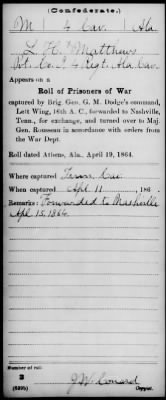 (Confederate.)
M 4 Cav. Ala.
L. H. Matthews
Pvt. Co. I, 4 Regt. Ala. Cav.
Appears on a
Roll of Prisoners of War
captured by Brig. Gen. G. M. Dodge's command,
Left Wing, 16th A. C., forwarded to Nashville,
Tenn., for exchange, and turned over to Maj.
Gen. Rousseau in accordance with orders from
the War Dept.
Roll dated Athens, Ala., April 19, 1864.
Where captured
When captured Apl 11, 186 .
Remarks: Forwarded to Nashville
Apl. 15, 1864
Number of roll:
3
(639b) J W Conard
Copyist.